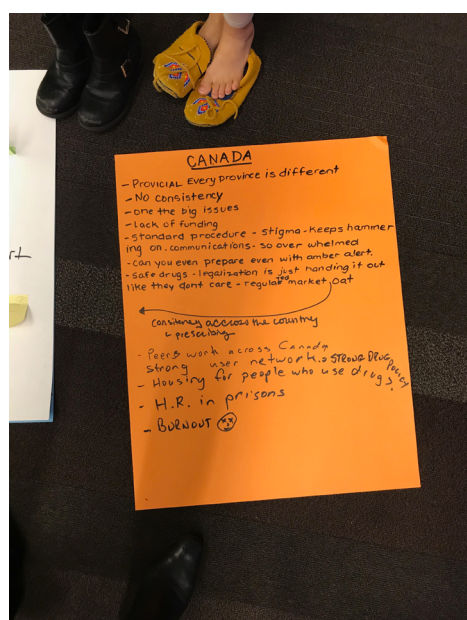 CANADA
- PROVICIAL Every province is different
- NO consistency
- one the big issues
- lack of funding
- standard procedure - stigma - keeps hammer
ing on. communications - so over whelmed
- can you even prepare even with amber alert.
- safe drugs - legalization is just handing it out
like they dont care - regulated market oat
consitency accross the country
prescribing
- Peers work across Canada
strong user network. STRONG DRUG POLICY
- Housing for people who use drugs!
- H.R. in prisons
- BURNOUT